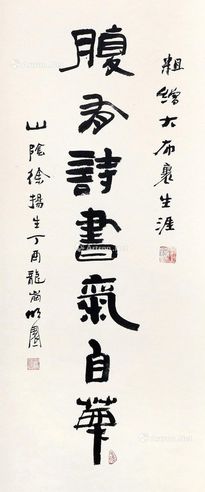 粗缯大布裹生涯
腹有詩書氣自華
山陰徐揚生丁酉龍崗帆園